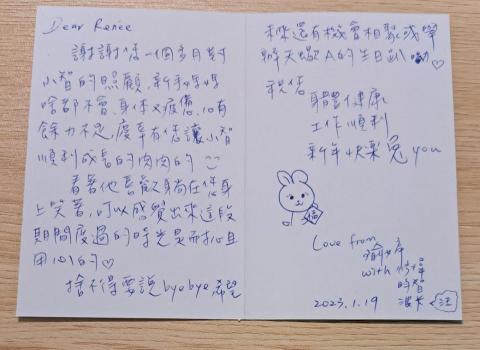 Dear Renee
謝謝您一個多月對
小智的照顧,新手媽媽
啥都不會,身體又疲憊,心有
餘力不足,慶幸有您讓小智
順利成長的肉肉的
看著他喜歡躺在您身
上笑著,可以感覺出來這段
期間度過的時光是開心且
用心的♡
捨不得要說byebye希望
未來還有機會相聚或舉
辦天蠍A的生日趴 ♡
祝您
身體健康
工作順利
新年快樂兔you
福
Love from
with
2023.1.19
汪